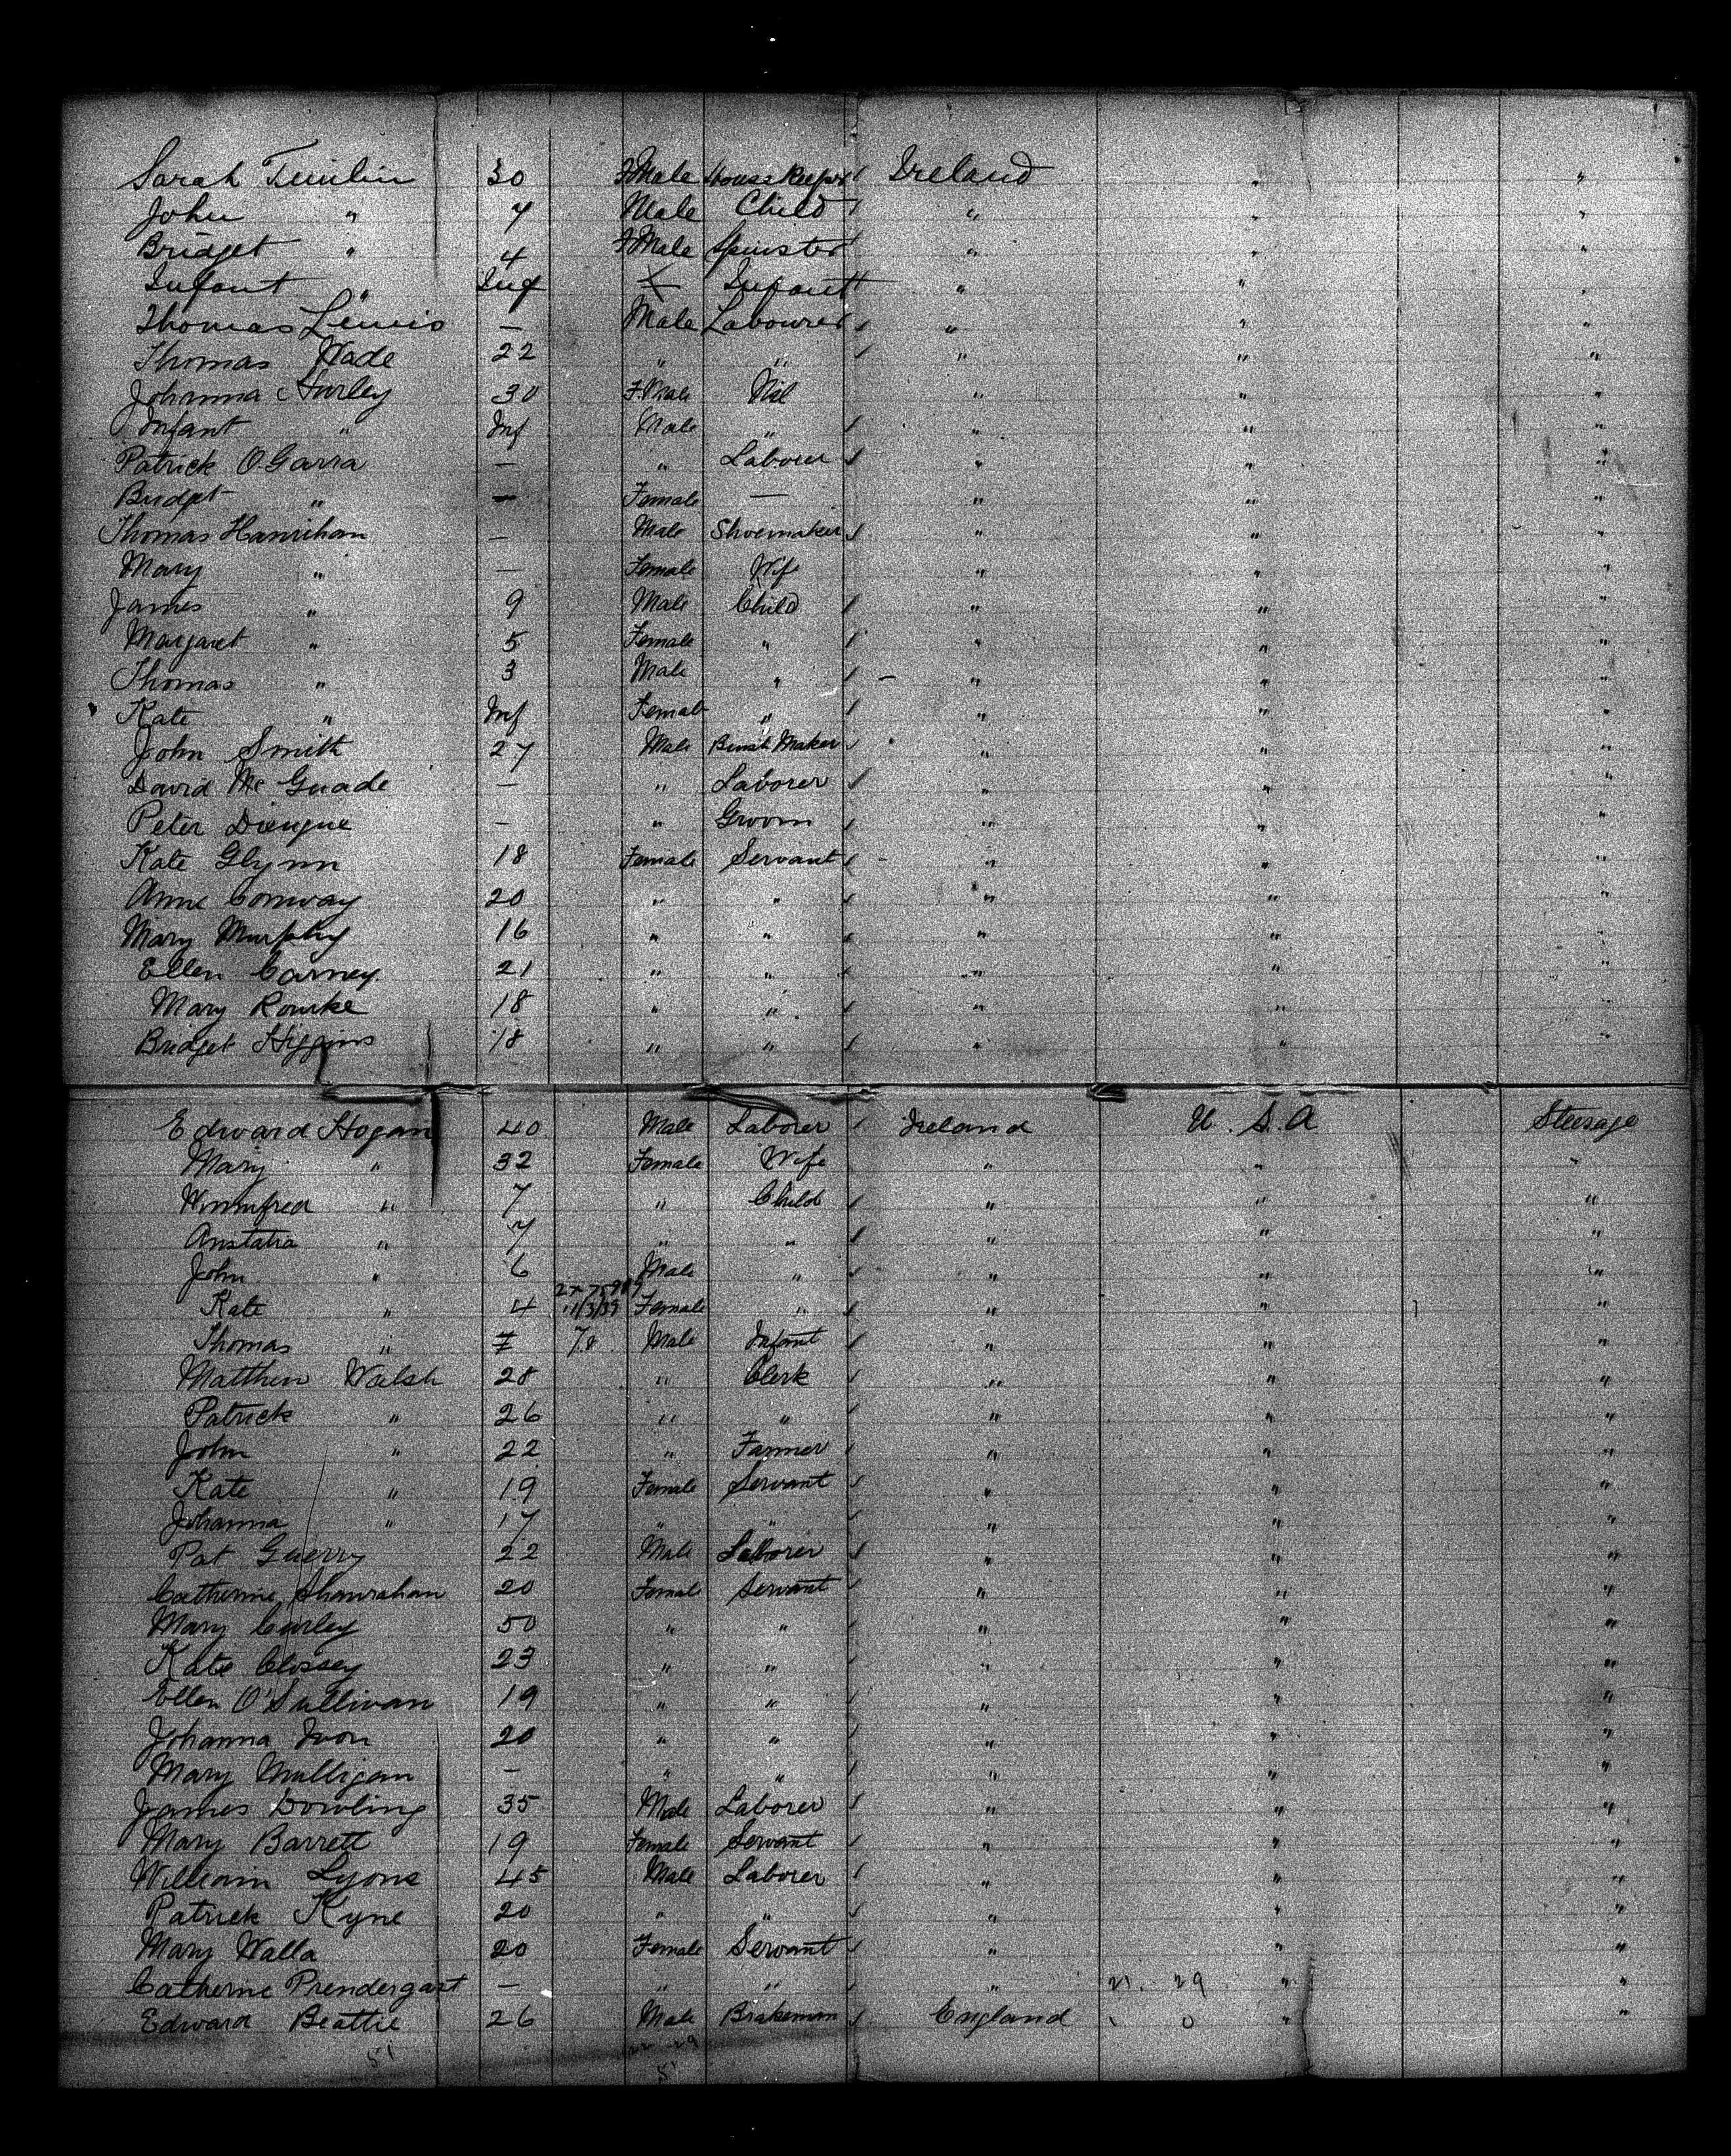 Sarah 30 FMale HouseKeeper Ireland " "
John " 7 Male Child " " "
Bridget " 4 FMale Spinster " " "
Infant " Inf Infant " " "
Thomas Lewis — Male Labourer " " "
Thomas Wade 22 " " " " "
Johanna Hurley 30 F.Male Nil " " "
Infant " Inf Male " " " "
Patrick O.Garra — " Laborer " " "
Bridget " — Female — " " "
Thomas Hanrihan — Male Shoemaker " " "
Mary " — Female Wife " " "
James " 9 Male Child " " "
Margaret " 5 Female " " " "
Thomas " 3 Male " " " "
Kate " Inf Female " " " "
John Smith 27 Male Maker " " "
David Mc Guade — " Laborer " " "
Peter — " Groom " " "
Kate Glynn 18 Female Servant " " "
Anne Conway 20 " " " " "
Mary Murphy 16 " " " " "
Ellen Carney. 21 " " " " "
Mary Rourke 18 " " " " "
Bridget Higgins 18 " " " " "
Edward Hogan 40 Male Laborer Ireland U.S.A Steerage
Mary " 32 Female Wife " " "
Winnifred " 7 " Child " " "
Anstatia " 7 " " " " "
John " 6 Male " " " "
Kate " 4 11/3/39 Female " " " "
Thomas " Male Infant " " "
Matthew Walsh 28 " Clerk " " "
Patrick " 26 " " " " "
John " 22 " Farmer " " "
Kate " 19 Female Servant " " "
Johanna " 17 " " " " "
Pat Guerry 22 Male Laborer " " "
Catherine Shanrahan 20 Female Servant " " "
Mary Curley 50 " " " " "
Kate Clossey 23 " " " " "
Ellen O'Sullivan 19 " " " " "
Johanna 20 " " " " "
Mary Mulligan — " " " " "
James Dowling 35 Male Laborer " " "
Mary Barrett 19 Female Servant " " "
William Lyons 45 Male Laborer " " "
Patrick Kyne 20 " " " " "
Mary Walla 20 Female Servant " " "
Catherine Prendergast — " " " 21. 29 " "
Edward Beattie 26 Male Brakeman England 0 " "
51
51